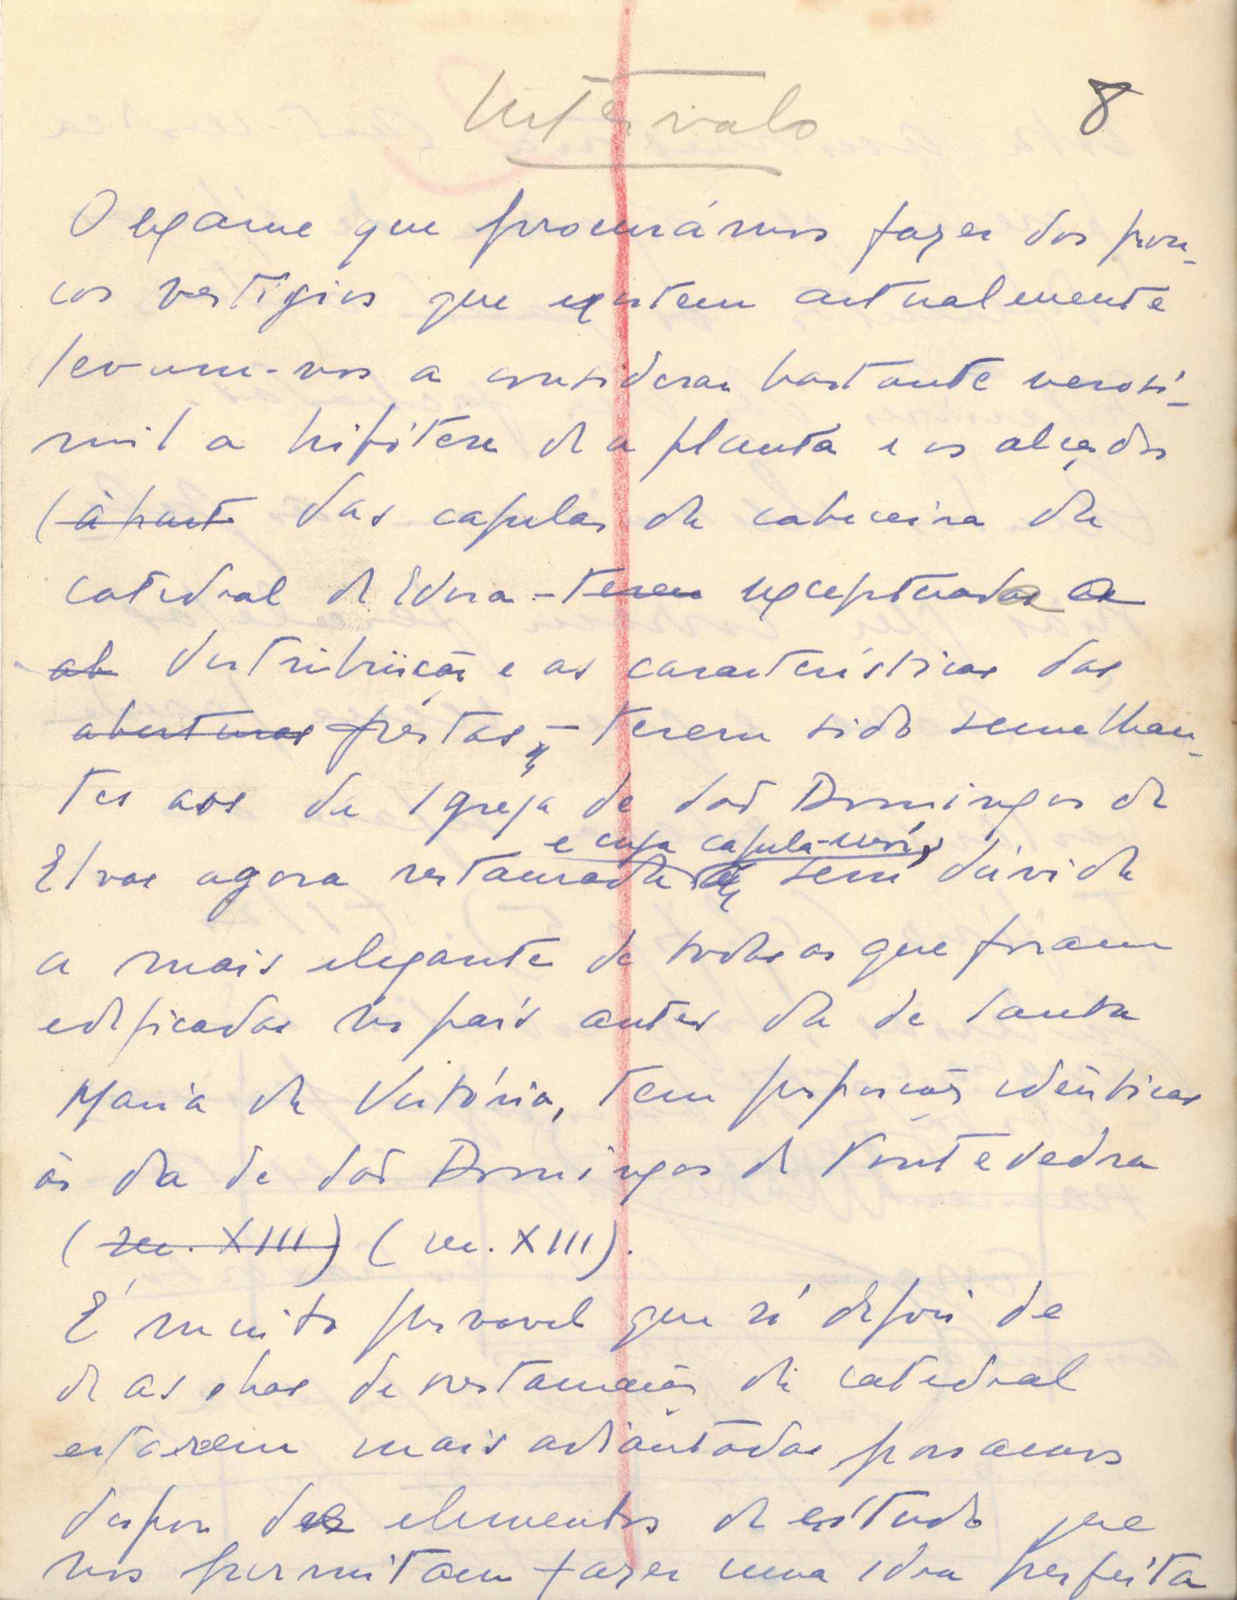 Intervalo
8
O exame que procurámos fazer dos pou-
cos vestígios que existem actualmente
levam-nos a considerar bastante verosí-
mil a hipótese de a planta e os alçados
(à parte das capelas da cabeceira da
catedral de Évora - terem exceptuada a
ab distribuição e as características das
aberturas frestas, - terem sido semelhan-
tes aos da Igreja de São Domingos de
e cuja capela-mor,
Elvas agora restaurada sem dúvida
a mais elegante de todas as que foram
edificadas no país antes da de Santa
Maria da Vitória, tem proporções idênticas
às da de São Domingos de Pontevedra
(séc. XIII) (séc. XIII).
É muito provavel que só depois de
de as obras de restauração da catedral
estarem mais adiantadas possamos
dispor de elementos de estudo que
nos permitam fazer uma ideia perfeita